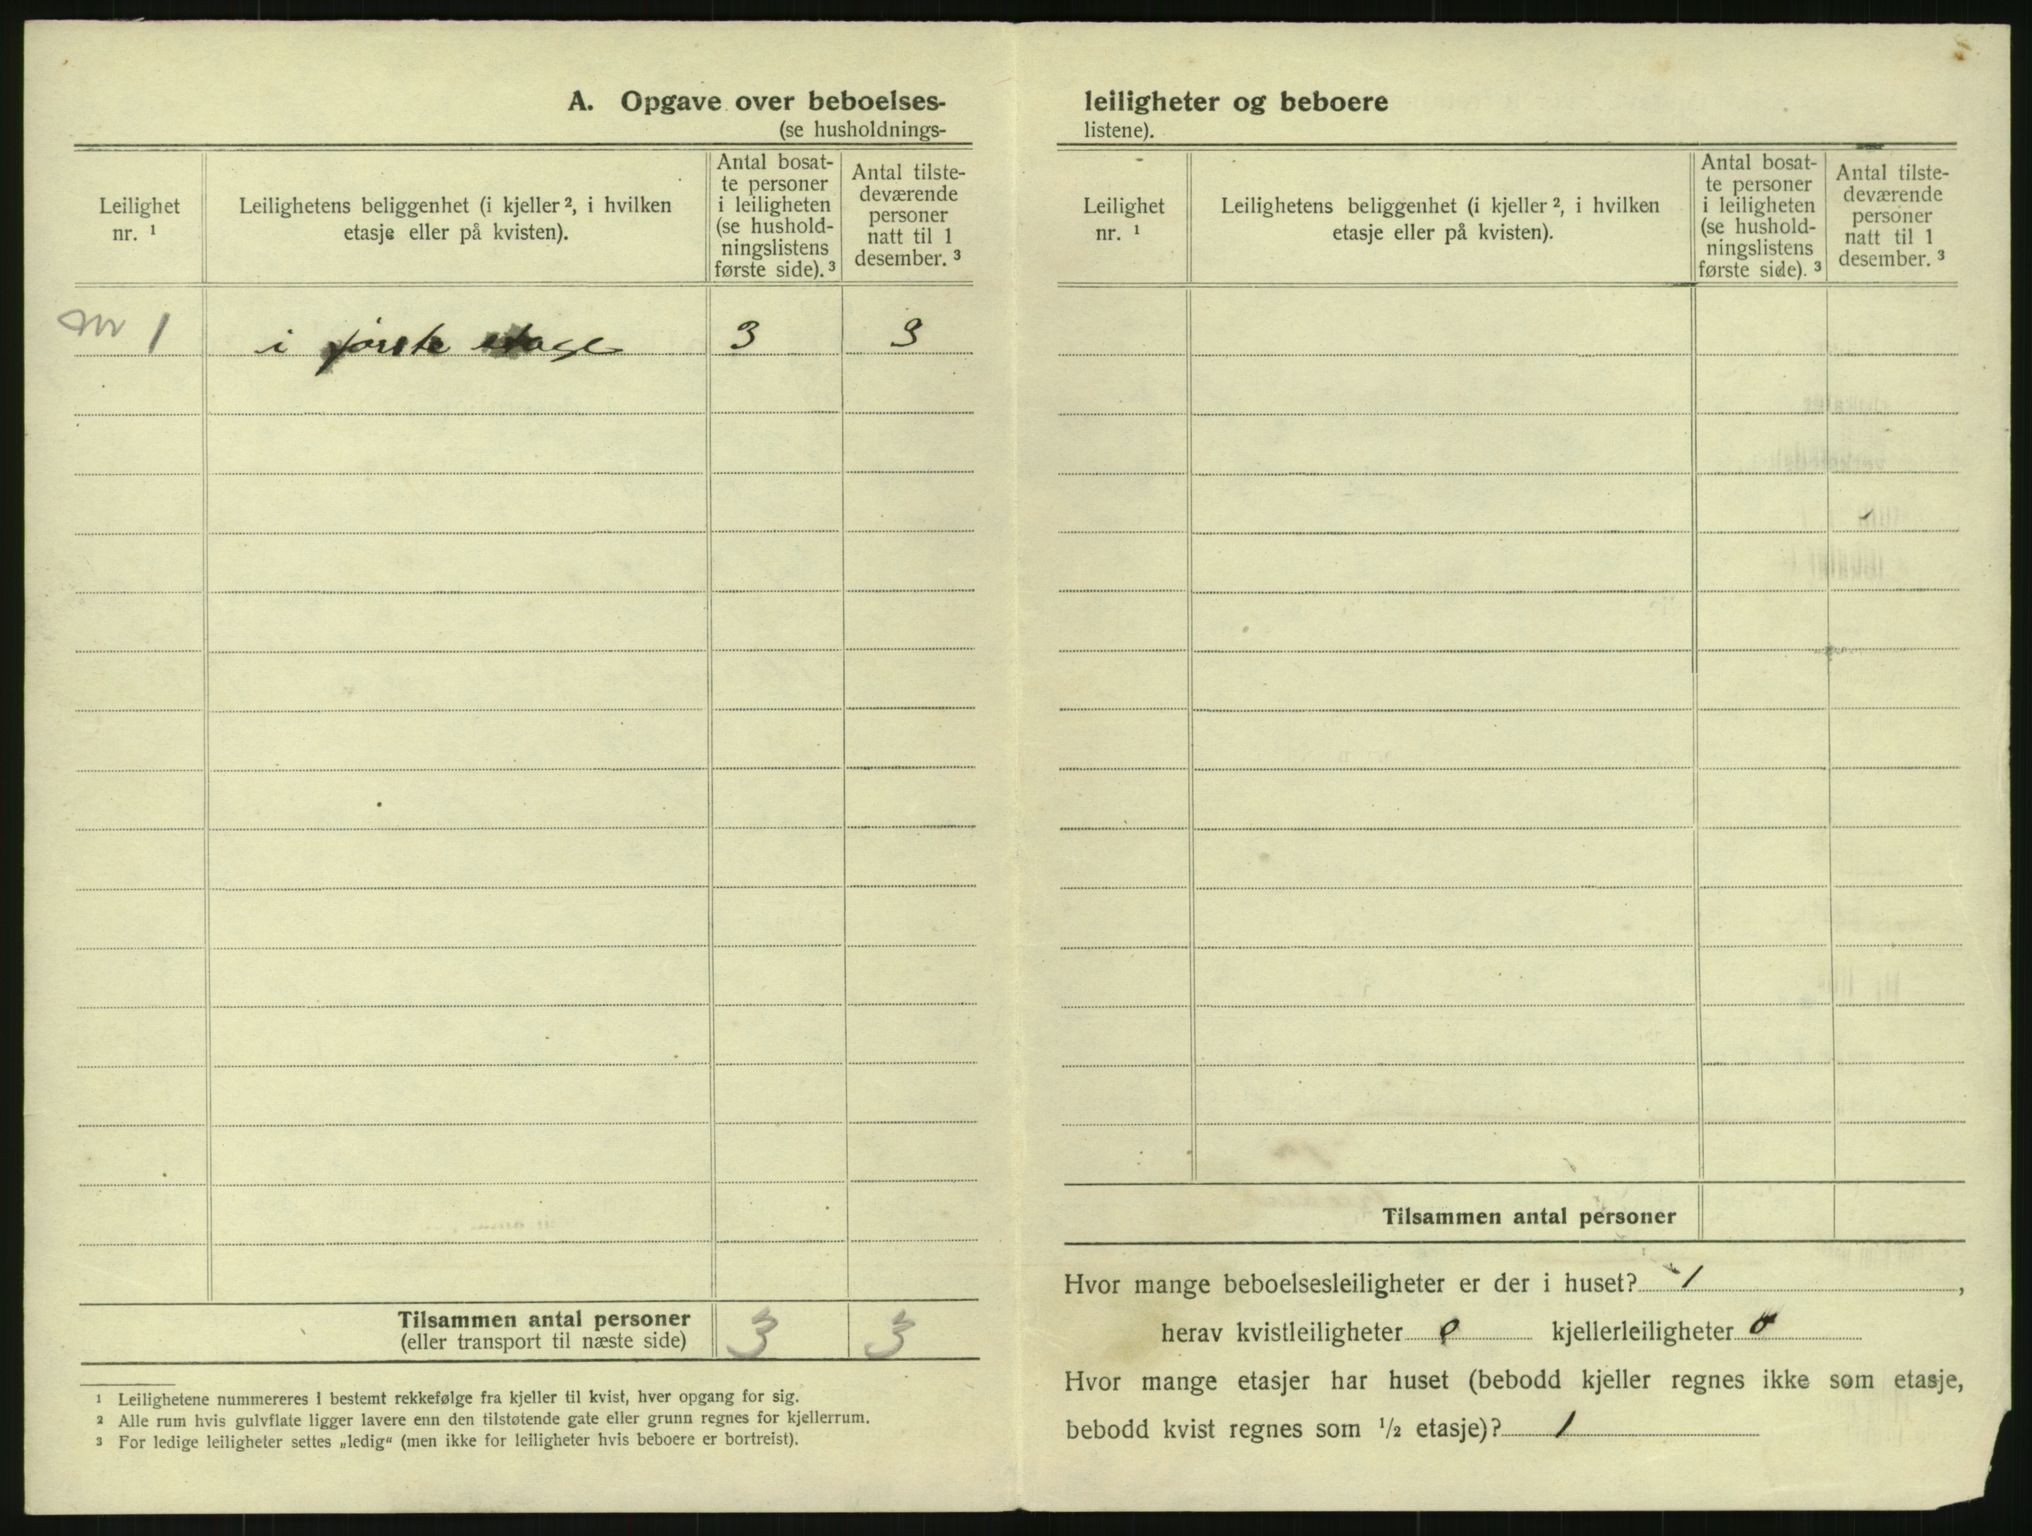 A. Opgave over beboelses-
(se husholdnings-
Leilighet
nr. ¹
Leilighetens beliggenhet (i kjeller ², i hvilken
etasje eller på kvisten).
Antal bosat-
te personer
i leiligheten
(se hushold-
ningslistens
første side). ³
Antal tilste-
deværende
personer
natt til 1
desember. ³
nr 1 i første etage 3 3
Tilsammen antal personer
(eller transport til næste side) 3 3
¹ Leilighetene nummereres i bestemt rekkefølge fra kjeller til kvist, hver opgang for sig.
² Alle rum hvis gulvflate ligger lavere enn den tilstøtende gate eller grunn regnes for kjellerrum.
³ For ledige leiligheter settes „ledig“ (men ikke for leiligheter hvis beboere er bortreist).
leiligheter og beboere
listene).
Leilighet
nr. ¹
Leilighetens beliggenhet (i kjeller ², i hvilken
etasje eller på kvisten).
Antal bosat-
te personer
i leiligheten
(se hushold-
ningslistens
første side). ³
Antal tilste-
deværende
personer
natt til 1
desember. ³
Tilsammen antal personer
Hvor mange beboelsesleiligheter er der i huset? 1,
herav kvistleiligheter 0 kjellerleiligheter 0
Hvor mange etasjer har huset (bebodd kjeller regnes ikke som etasje,
bebodd kvist regnes som ½ etasje)? 1